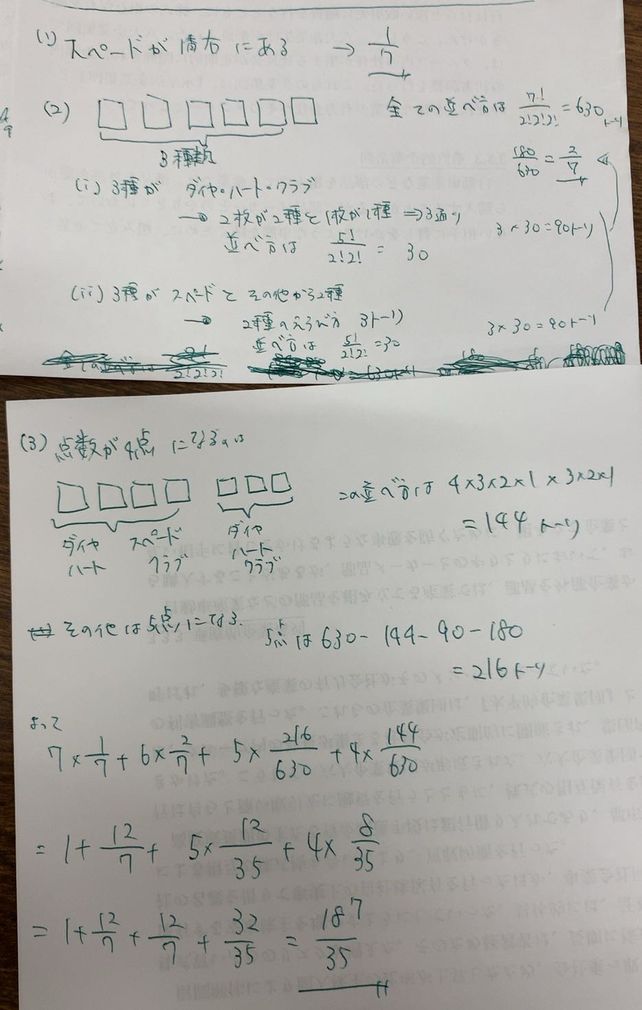 (1) スペードが 情右 にある → 1/7
(2) 全ての並べ方は 7!/2!2!2! = 630トーリ
3種類 180/630 = 2/7
(i) 3種が ダイヤ・ハート・クラブ
→ 2枚が2種と1枚が1種 ⇒ 3通り
並べ方は 5!/2!2! = 30 3×30=90トーリ
(ii) 3種が スペードと その他から2種
→ 2種のえらび方 3トーリ
並べ方は 5!/2!2! = 30 3×30=90トーリ
(3) 点数が4点 になるのは
この並べ方は 4×3×2×1×3×2×1
= 144トーリ
ダイヤ スペード ダイヤ
ハート クラブ ハート
クラブ
その他は5点になる.
5点は 630-144-90-180
= 216トーリ
よって
7×1/7 + 6×2/7 + 5×216/630 + 4×144/630
= 1 + 12/7 + 5×12/35 + 4×8/35
= 1 + 12/7 + 12/7 + 32/35 = 187/35